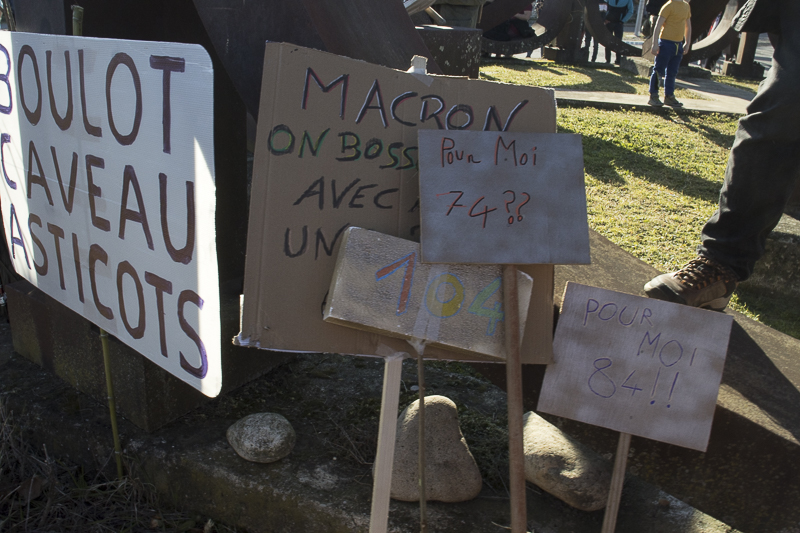 BOULOT
CAVEAU
ASTICOTS
MACRON
ON BOSS
AVEC
UN
POUR MOI
74??
104
POUR
MOI
84!!